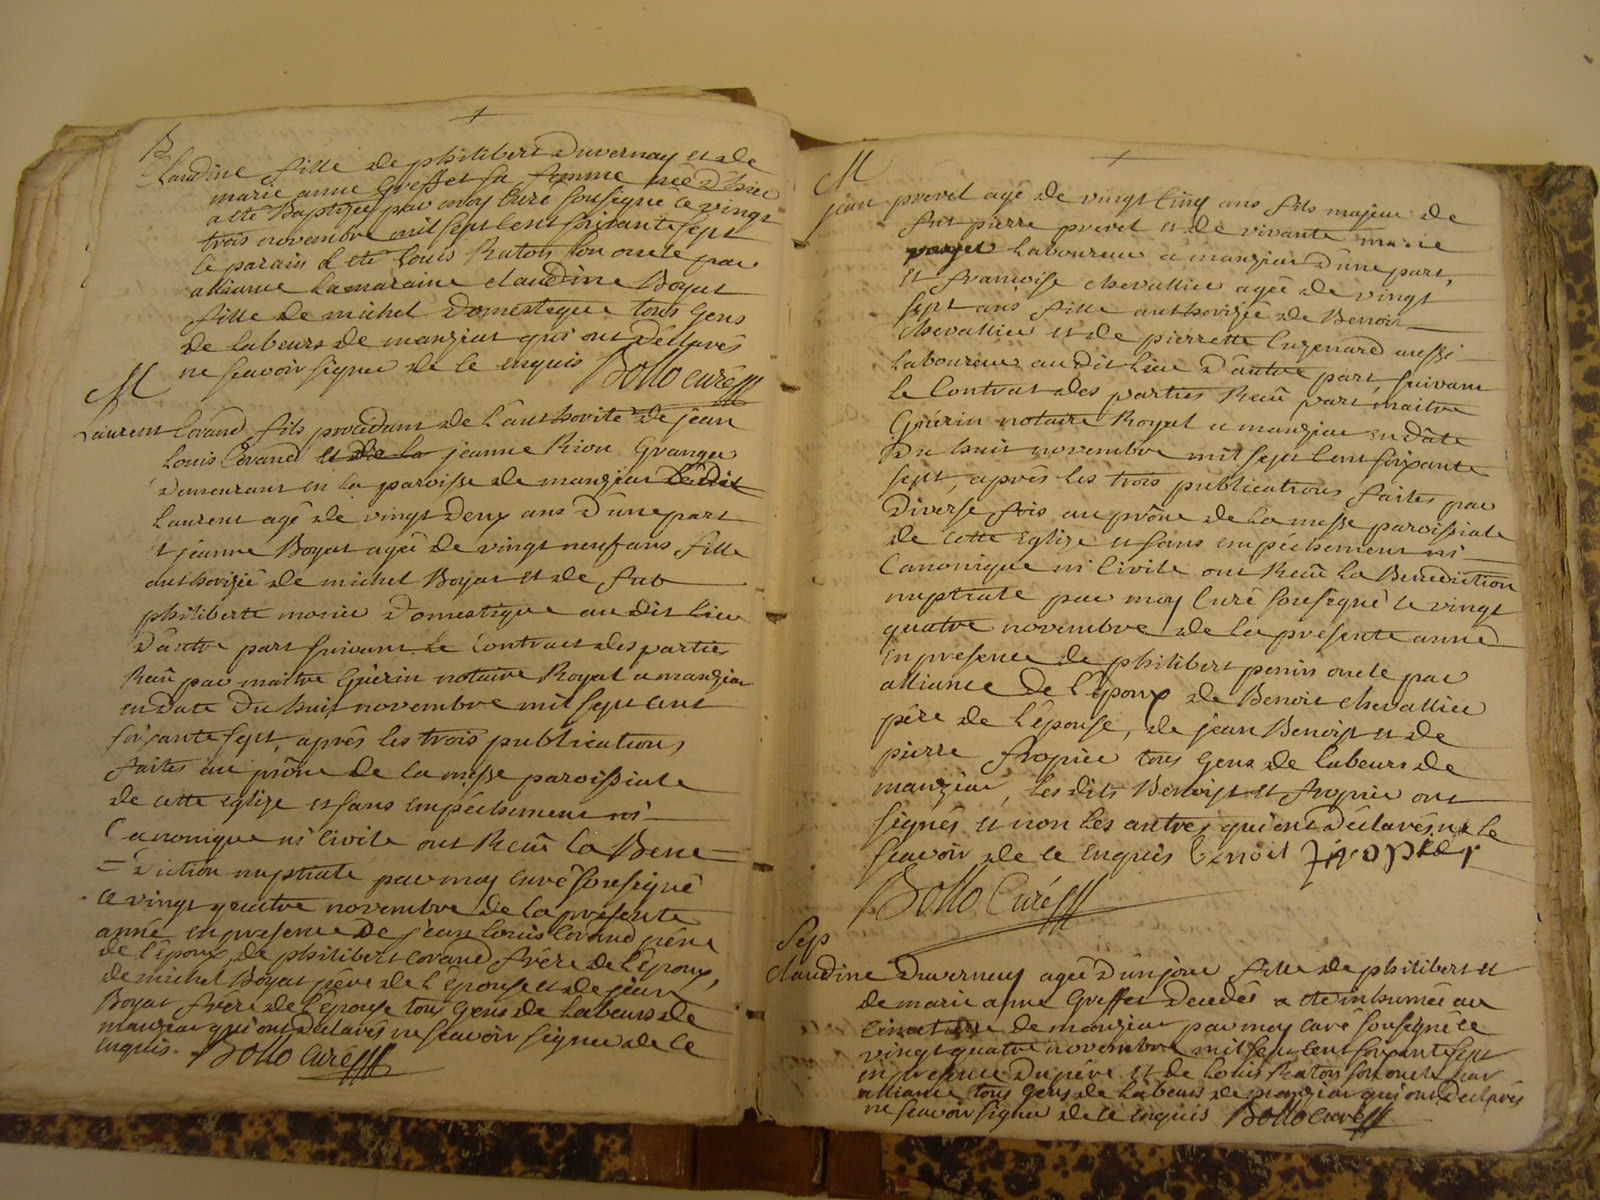 B
Claudine fille de philibert Duvernay et de
marie anne Greffet sa femme née d'hier
a eté Baptizée par moy Curé sousigné le vingt
trois novembre mil sept cent soixante sept
le parain a eté Louis Raton son oncle par
alliance La maraine claudine Boyat
fille de michel Domestique tous Gens
de labeurs de manziat qui ont Déclarés
ne scavoir signer de ce enquis Bollo curé
M
Laurent Corand fils procédant de l'authorité de jean
Louis Corand et de la jeanne Rion Granger
Demeurant en la paroisse de manziat Ledit
Laurent agé de vingt deux ans D'une part
et jeanne Boyat agée de vingt neuf ans fille
authorizée de michel Boyat et de fut
philiberte morie Domestique au dit Lieu
D'autre part suivant Le Contract des parties
Reçû par maitre Guerin notaire Royal a manziat
en date Du huit novembre mil sept cent
soixante sept, après les trois publications
faites au prône de la messe paroissiale
de cette Eglize et sans empéchement ni
Canonique ni Civile ont Reçû la Bene
=diction nuptiale par moy curé sousigné
Ce vingt quatre novembre de la présente
année en presence de jean Louis Corand pére
de l'époux, de philibert Corand frère de l'époux,
de michel Boyat pére de l'épouse et de jean
Boyat frére de l'épouse tous Gens de Labeurs de
manziat qui ont Déclarés ne scavoir signer de ce
enquis. Bollo Curé
M
jean prevel agé de vingt Cinq ans fils majeur de
fut pierre prevel et de vivante marie
Laboureur a manziat D'une part,
Et francoise chevallier agée de vingt
sept ans fille authorizée de Benoit
Chevallier et de pierrette Luzenard aussi
Laboureur audit Lieu D'autre part, suivant
le Contrat des parties Reçû part maitre
Guerin notaire Royal a manziat en dâte
Du huit novembre mil sept cent soixante
sept, après les trois publications faites par
Diverse fois au prône de la messe paroissiale
de cette Eglize et sans empéchement ni
Canonique ni Civile ont Reçû la Benediction
nuptiale par moy Curé sousigné le vingt
quatre novembre de la présente année
en presence de philibert perrin oncle par
alliance de l'époux de Benoit chevallier
pére de l'épouse, de jean Benoist et de
pierre fropier tous Gens de labeurs de
manziat, Les dits Benoist et fropier ont
signés et non les autres qui ont Déclarés ne le
scavoir de ce enquis benoit fropier
Bollo Curé
Sep
Claudine Duvernay agée d'un jour fille de philibert et
de marie anne Greffet Décédés a eté inhumée au
Cimetière de manziat par moy curé sousigné ce
vingt quatre novembre mil sept cent soixante sept
en presence Du pére et de Louis Raton son oncle par
alliance tous Gens de Labeurs de manziat qui ont Déclarés
ne scavoir signer de ce enquis Bollo curé